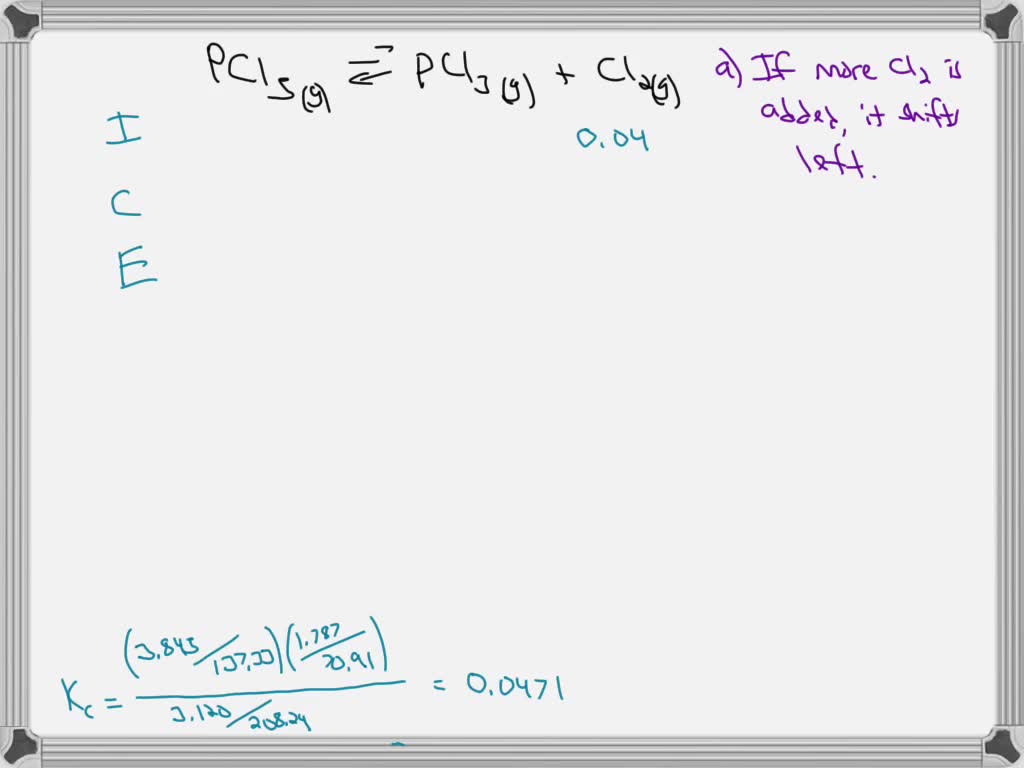 PCl5(g) ⇌ PCl3(g) + Cl2(g)
a) If more Cl2 is
added, it shifts
left.
I
0.04
C
E
Kc = (3.845/137.33)(1.787/70.91) / 3.120/208.24 = 0.0471